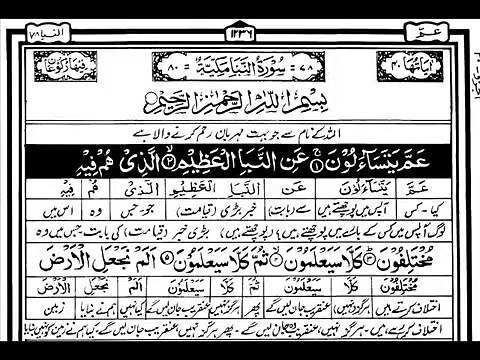 عمّ ١٢٣٦ النبا ٧٨
اٰيَاتُهَا ٤٠ ﴿٧٨﴾ سُوْرَةُ النَّبَاِ مَكِّيَّةٌ ﴿٨٠﴾ رُكُوْعَاتُهَا
بِسْمِ اللّٰهِ الرَّحْمٰنِ الرَّحِيْمِ
اللہ کے نام سے جو بہت مہربان رحم کرنے والا ہے
عَمَّ يَتَسَآءَلُوْنَ ۚ‏ ١ عَنِ النَّبَاِ الْعَظِيْمِ ٢ الَّذِىْ هُمْ فِيْهِ
عَمَّ يَتَسَآءَلُوْنَ عَنِ النَّبَاِ الْعَظِيْمِ الَّذِىْ هُمْ فِيْهِ
کیا - کس آپس میں پوچھتے ہیں سے (بابت) خبر بڑی (قیامت) جو جس وہ اس میں
لوگ آپس میں کس کے بارے میں پوچھتے ہیں؟ بڑی خبر (قیامت) کی بابت، جس میں وہ
مُخْتَلِفُوْنَ ٣ كَلَّا سَيَعْلَمُوْنَ ٤ ثُمَّ كَلَّا سَيَعْلَمُوْنَ ٥ اَلَمْ نَجْعَلِ الْاَرْضَ
مُخْتَلِفُوْنَ كَلَّا سَيَعْلَمُوْنَ ثُمَّ كَلَّا سَيَعْلَمُوْنَ اَلَمْ نَجْعَلِ الْاَرْضَ
اختلاف کرتے ہیں ہرگز نہیں عنقریب جان لیں گے پھر ہرگز نہیں عنقریب جان لیں گے کیا نہیں ہم نے بنایا زمین
اختلاف کر رہے ہیں، ہرگز نہیں، عنقریب وہ جان لیں گے، پھر ہرگز نہیں عنقریب جان لیں گے، کیا ہم نے زمین کو نہیں بنایا